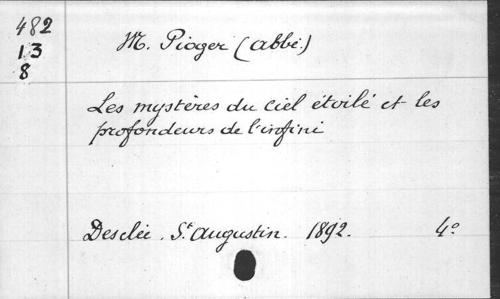 482
13
8
M. Pioger (abbé.)
Les mystères du ciel étoilé et les
profondeurs de l'infini
Desclée. St. Augustin. 1892. 4°